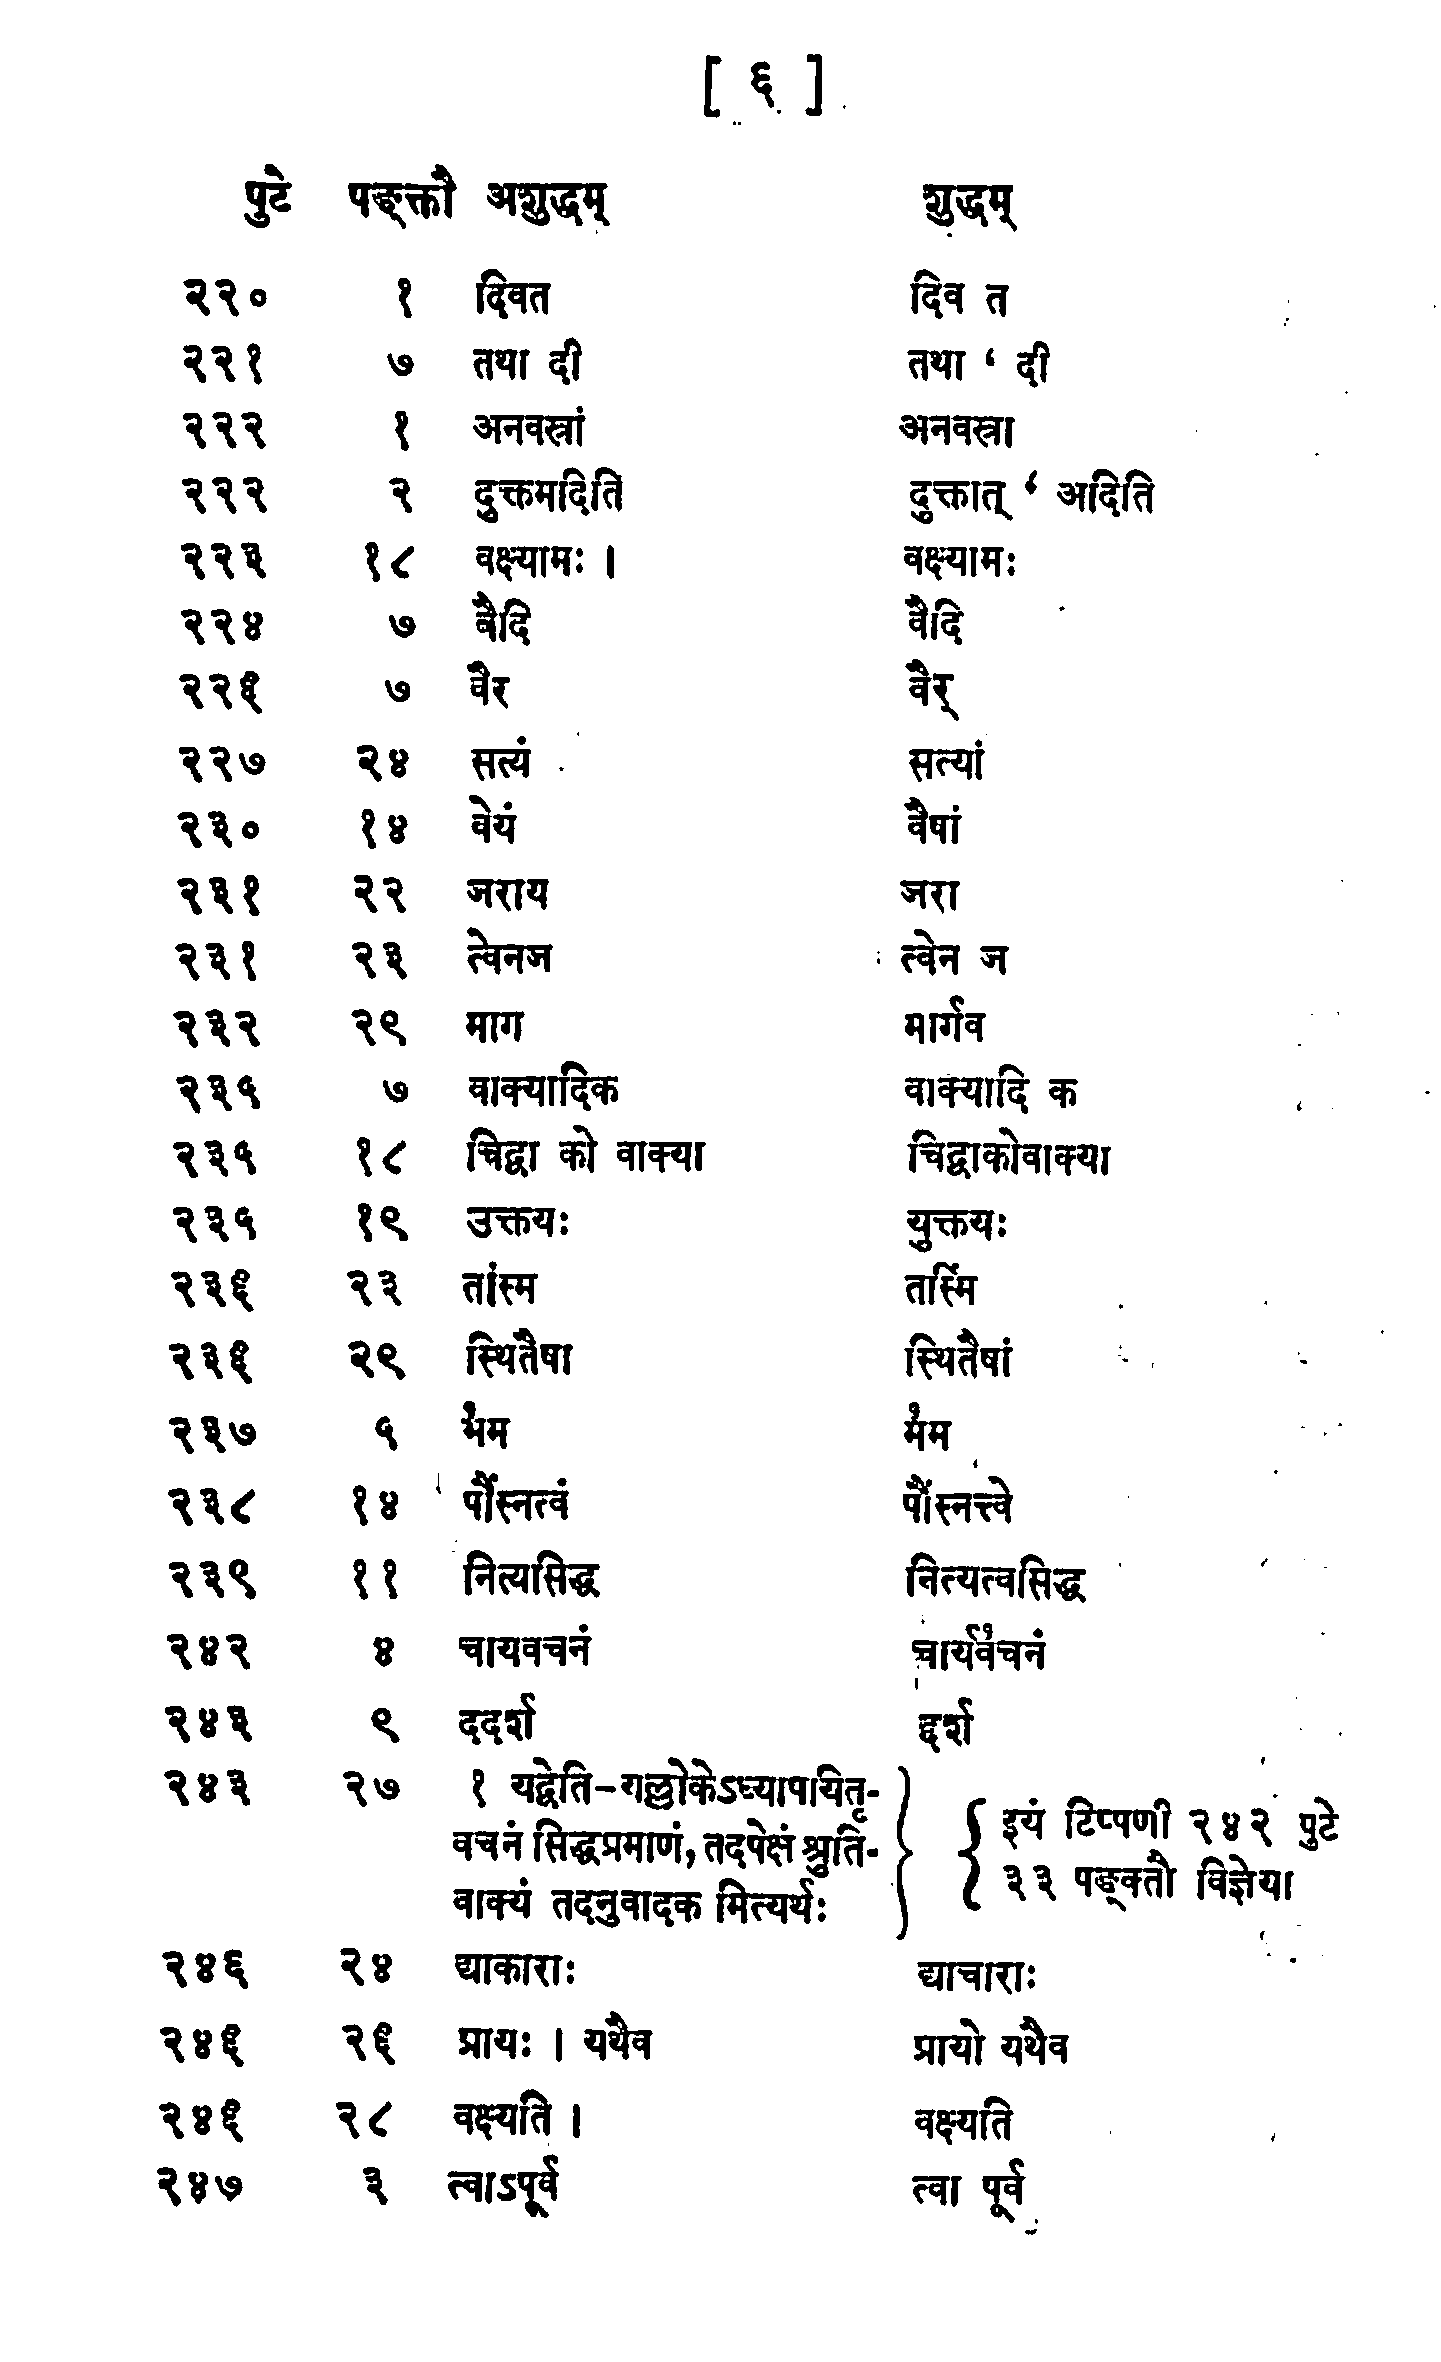 [ ६ ]
पुटे पङ्क्तौ अशुद्धम् शुद्धम्
२२० १ दिवत दिव त
२२१ ७ तथा दी तथा ‘ दी
२२२ १ अनवस्रां अनवस्रा
२२२ २ दुक्तमदिति दुक्तात् ‘ अदिति
२२३ १८ वक्ष्यामः । वक्ष्यामः
२२४ ७ बैदि वैदि
२२६ ७ वैर वैर्
२२७ २४ सत्यं सत्यां
२३० १४ वेयं वैषां
२३१ २२ जराय जरा
२३१ २३ त्वेनज त्वेन ज
२३२ २९ माग मार्गव
२३५ ७ वाक्यादिक वाक्यादि क
२३५ १८ चिद्वा को वाक्या चिद्वाकोवाक्या
२३५ १९ उक्तयः युक्तयः
२३६ २३ तांस्म तस्मिं
२३६ २९ स्थितैषा स्थितैषां
२३७ ५
२३८ १४ पौंस्नत्वं पौंस्नत्त्वे
२३९ ११ नित्यसिद्ध नित्यत्वसिद्ध
२४२ ४ चायवचनं
२४३ ९ ददर्श द्दर्श
२४३ २७ १ यद्वेति-गल्लोकेऽध्यापयितृ-
वचनं सिद्धप्रमाणं, तदपेक्षं श्रुति-
वाक्यं तदनुवादक मित्यर्थः
इयं टिप्पणी २४२ पुटे
३३ पङ्क्तौ विज्ञेया
२४६ २४ द्याकाराः द्याचाराः
२४६ २६ प्रायः । यथैव प्रायो यथैव
२४६ २८ वक्ष्यति । वक्ष्यति
२४७ ३ त्वाऽपूर्व त्वा पूर्व